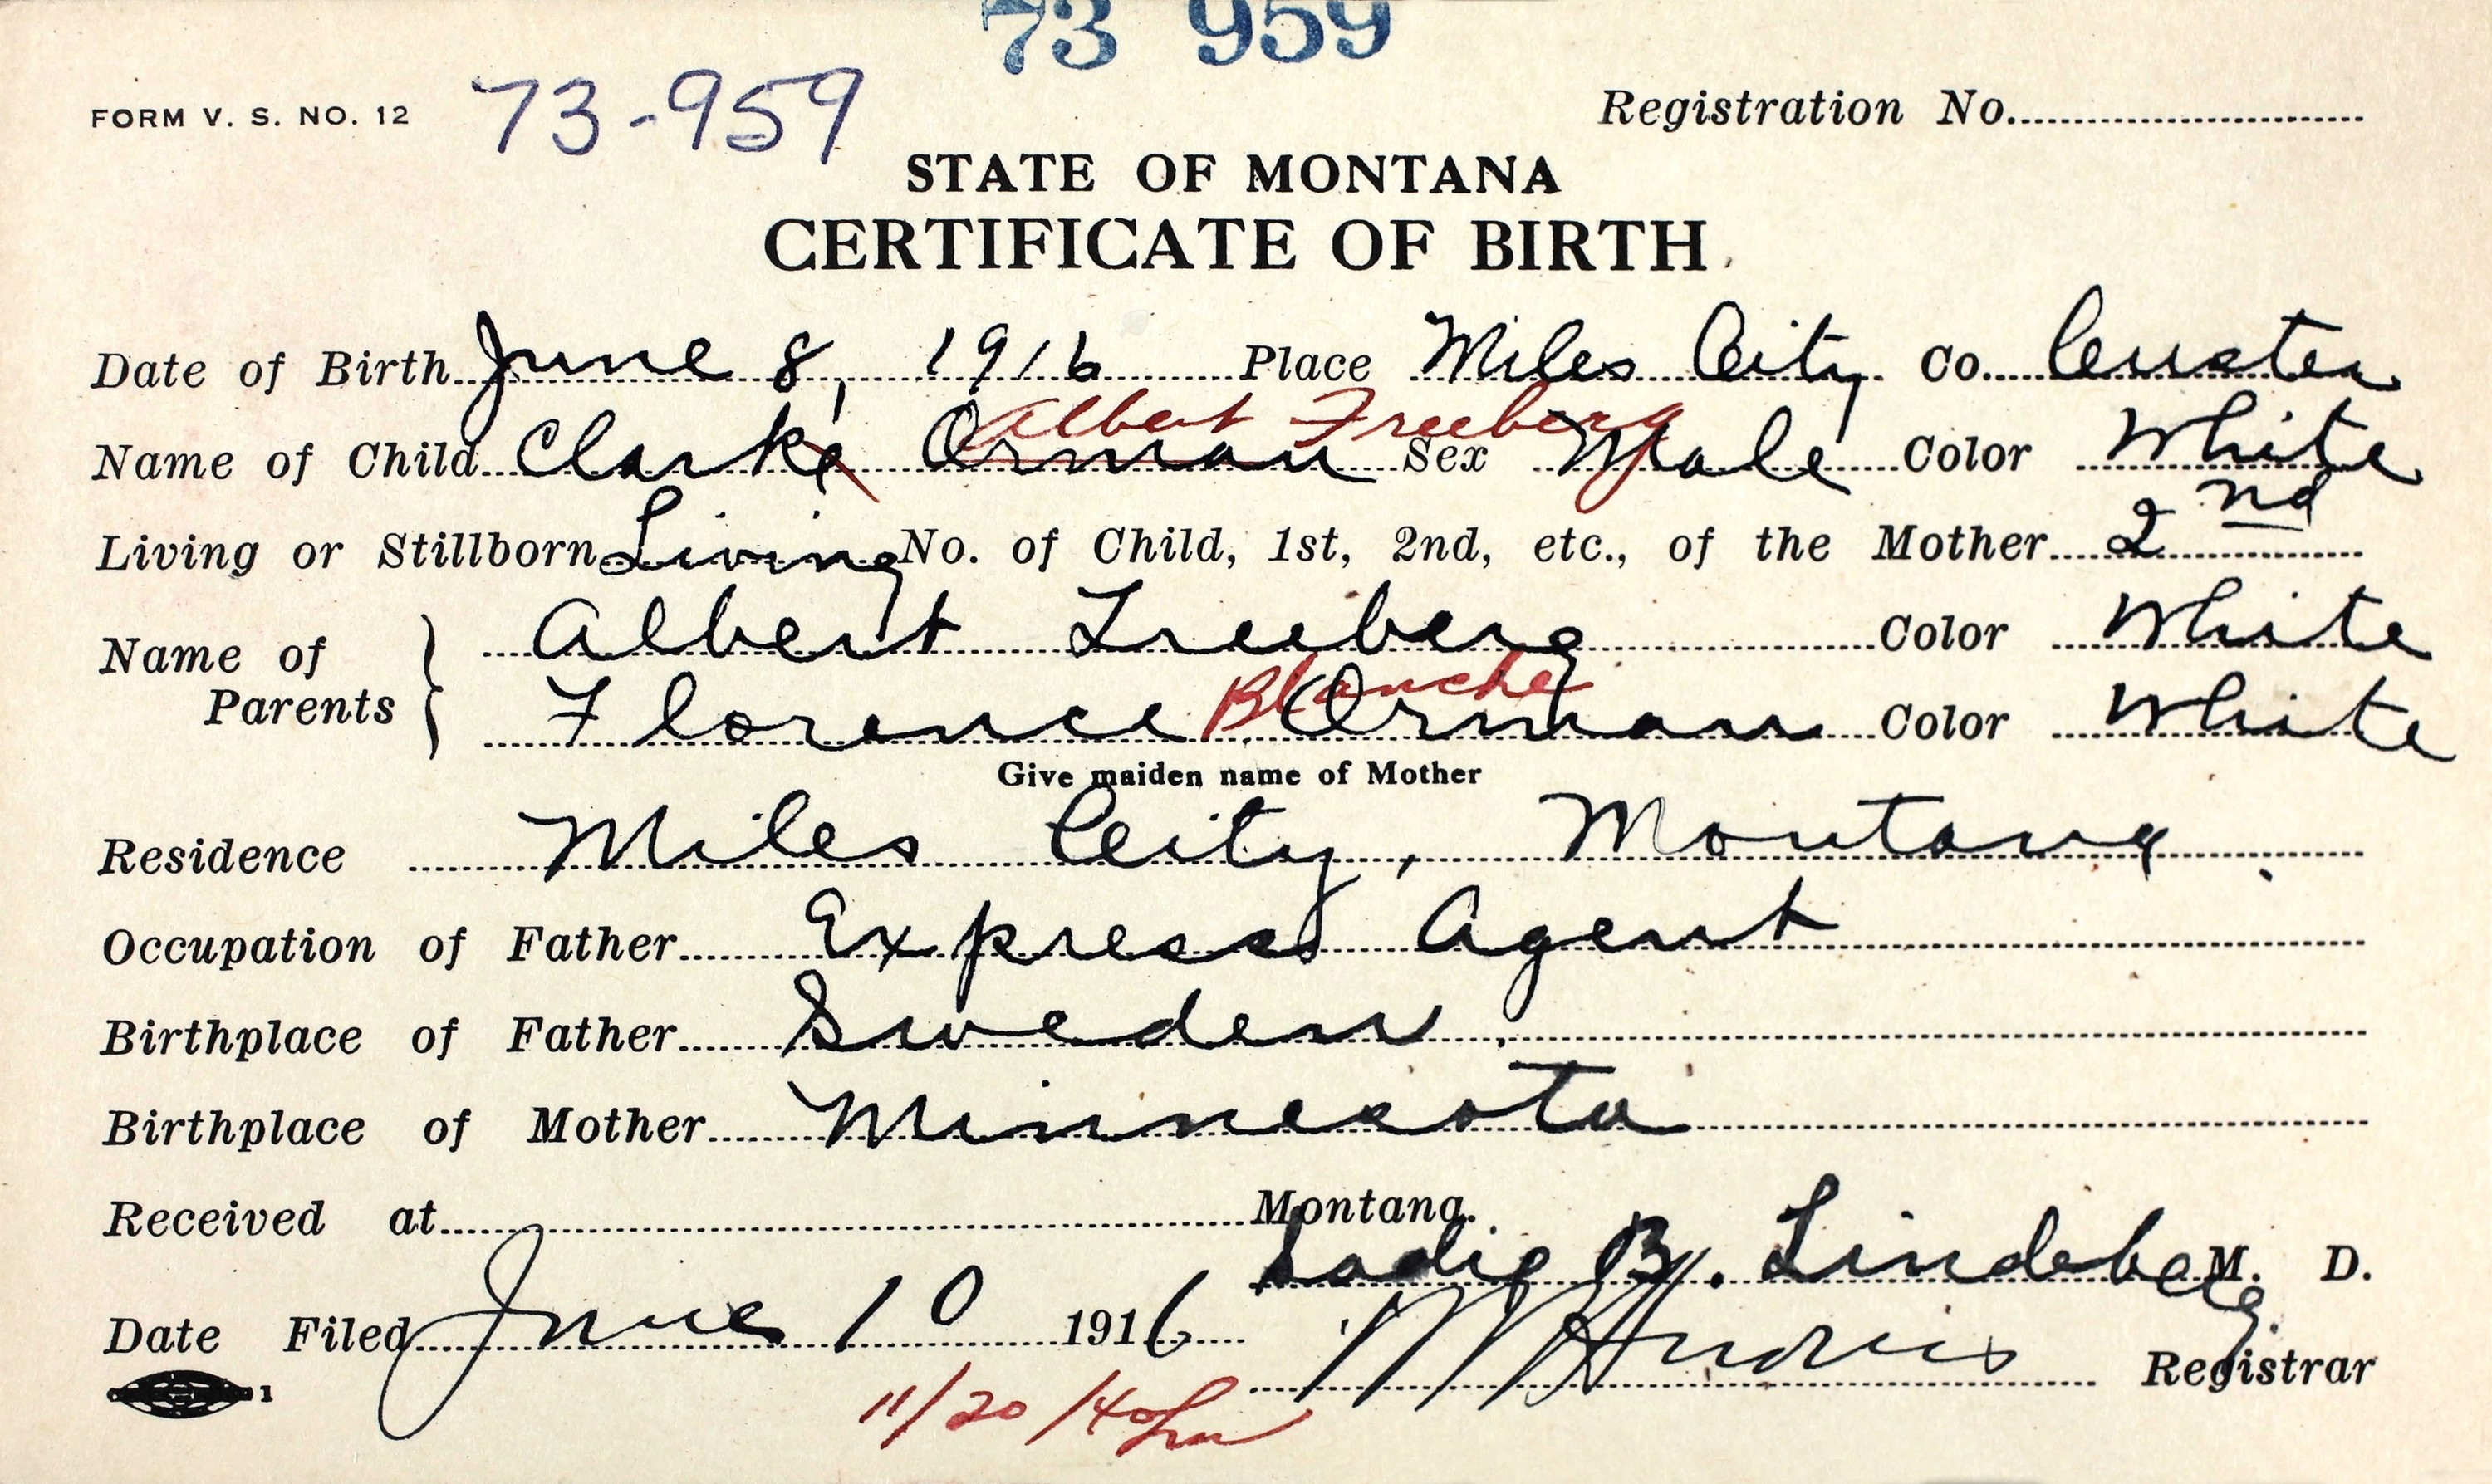 73 959
FORM V. S. NO. 12 73-959 Registration No.
STATE OF MONTANA
CERTIFICATE OF BIRTH
Date of Birth June 8, 1916 Place Miles City Co. Custer
Albert Freeberg
Name of Child Clarke Orman Sex Male Color White
Living or Stillborn Living No. of Child, 1st, 2nd, etc., of the Mother 2nd
Name of Parents } Albert Freeberg Color White
Blanche
Florence Orman Color White
Give maiden name of Mother
Residence Miles City, Montana
Occupation of Father Express Agent
Birthplace of Father Sweden
Birthplace of Mother Minnesota
Received at Montana.
Sadie B. Lindeberg M. D.
Date Filed June 10 1916
Andrus Registrar
1
11/20/40